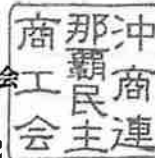 沖商連
那霸民主
商工会
会